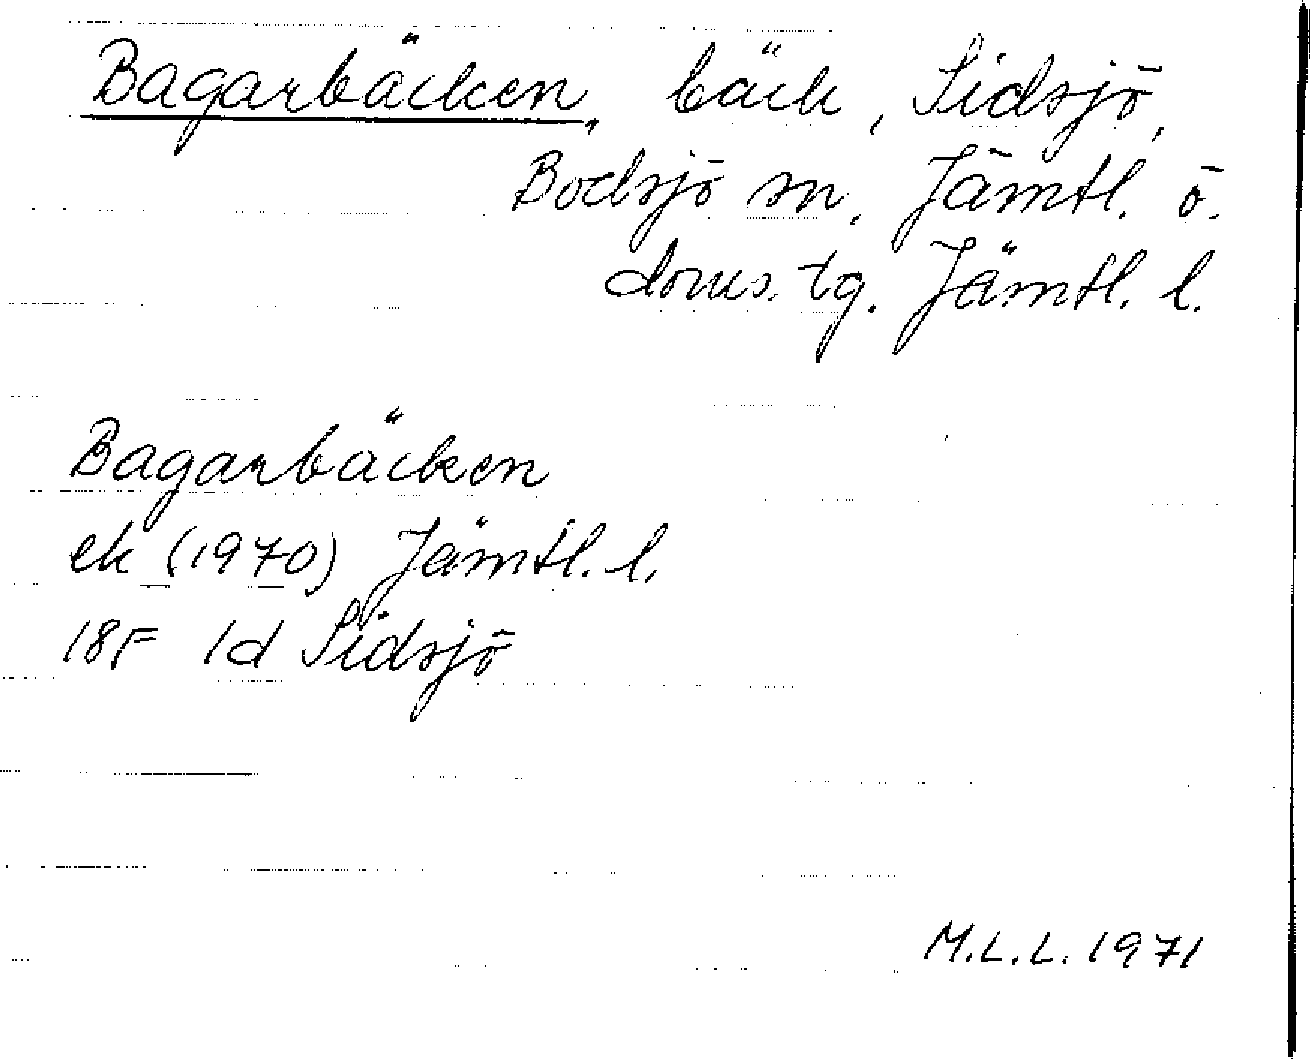 Bagarbäcken, bäck, Sidsjö,
Bodsjö sn, Jämtl. ö.
doms. tg. Jämtl. l.
Bagarbäcken
ek (1970) Jämtl. l.
18F 1d Sidsjö
M.L.L. 1971